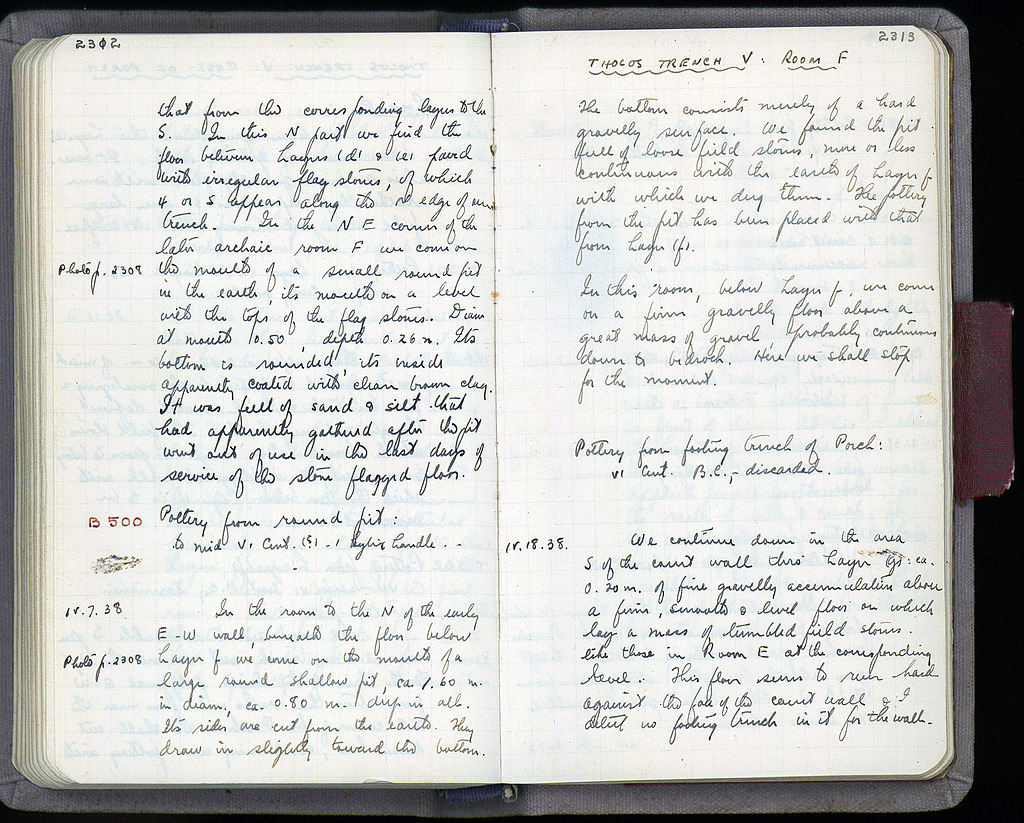 2302
that from the corresponding layers to the
S. In this N part we find the
floor between Layers (d) & (e) paved
with irregular flag stones, of which
4 or 5 appear along the N edge of our
trench. In the N E corner of the
later archaic room F we come on
Photo p. 2308 the mouth of a small round pit
in the earth its mouth on a level
with the tops of the flag stones. Diam
at mouth 0.50, depth 0.26 m. Its
bottom is rounded, its inside
apparently coated with clean brown clay.
It was full of sand & silt that
had apparently gathered after the pit
went out of use in the last days of
service of the stone flagged floor.
B 500 Pottery from round pit:
to mid VI Cent. (?) - 1 kylix handle. -
IV.7.38 In the room to the N of the early
E-W wall beneath the floor below
Photo p. 2308 Layer f we come on the mouth of a
large round shallow pit, ca 1.60 m.
in diam. ca. 0.80 m. deep in all.
Its sides are cut from the earth. They
draw in slightly toward the bottom.
2313
THOLOS TRENCH V: ROOM F
The bottom consists merely of a hard
gravelly surface. We found the pit
full of loose field stones, more or less
continuous with the earth of Layer f
with which we dug them. The pottery
from the pit has been placed with that
from Layer (f).
In this room, below Layer f, we come
on a firm gravelly floor above a
great mass of gravel, probably continuous
down to bedrock. Here we shall stop
for the moment.
Pottery from footing trench of Porch:
VI Cent. B.C., - discarded.
IV.18.38. We continue down in the area
S of the court wall thro' Layer (g): ca.
0.20 m. of fine gravelly accumulation above
a firm, smooth & level floor on which
lay a mass of tumbled field stones.
like those in Room E at the corresponding
level. This floor seems to run hard
against the face of the court wall & I
detect no footing trench in it for the wall.